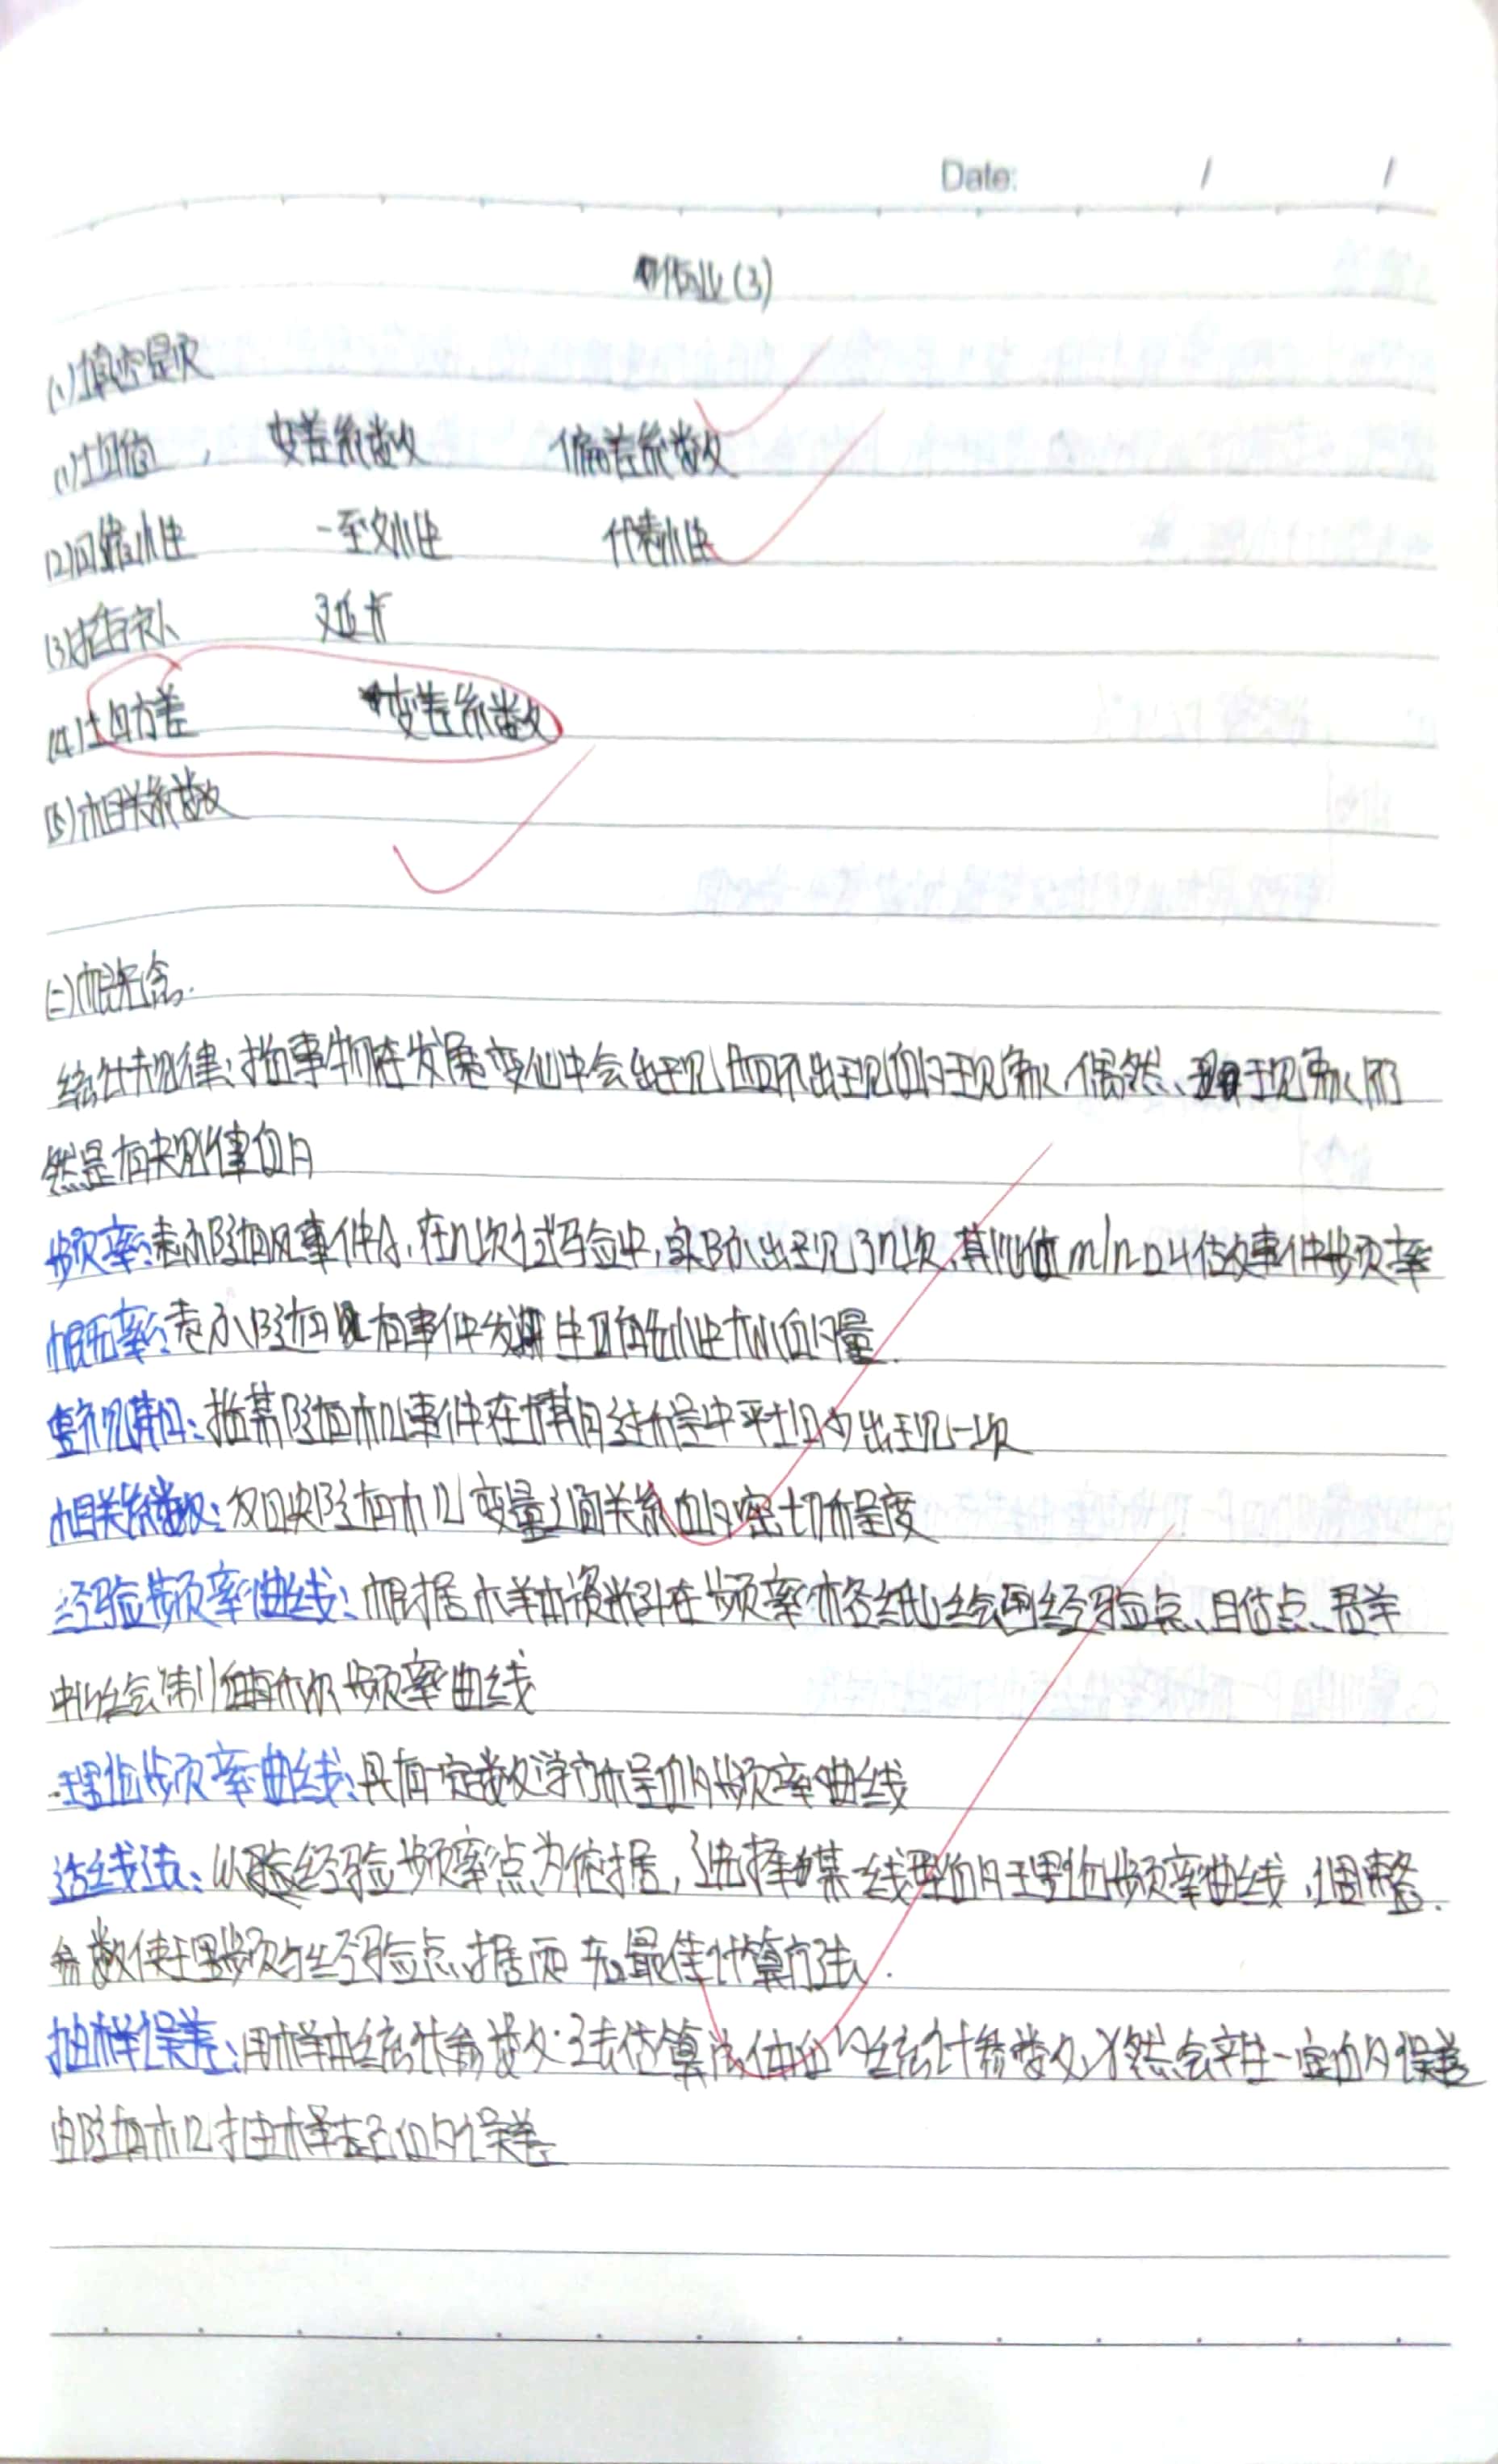 Date: / /
作业(3)
(1)填空题
(1)均值, 变差系数 偏差系数
(2)可靠性 一致性 代表性
(3)插补 延长
(4)均方差 变差系数
(5)相关系数
(二)概念.
统计规律:指事物在发展变化中会出现也可不出现的现象,偶然、现象
然是有规律的
频率:表示随机事件A,在n次试验中,实际出现了m次,其比值m/n 叫做事件频率
概率:表示随机事件发生可能性大小的量.
重现期:指某随机事件在长期过程中平均多少出现一次
相关系数:反映随机变量之间关系的密切程度
经验频率曲线:根据样本资料在频率格纸上绘经验点、目估点、群
中心绘制 频率曲线
理论频率曲线:具有一定数学方程的频率曲线
适线法:以经验频率点为依据,选择某一线型的理论频率曲线,调整.
参数使理频与经验点据 最佳计算方法.
抽样误差:用样本统计参数 去估算总体的统计参数必然会产生一定的误差
由随机抽样引起的误差